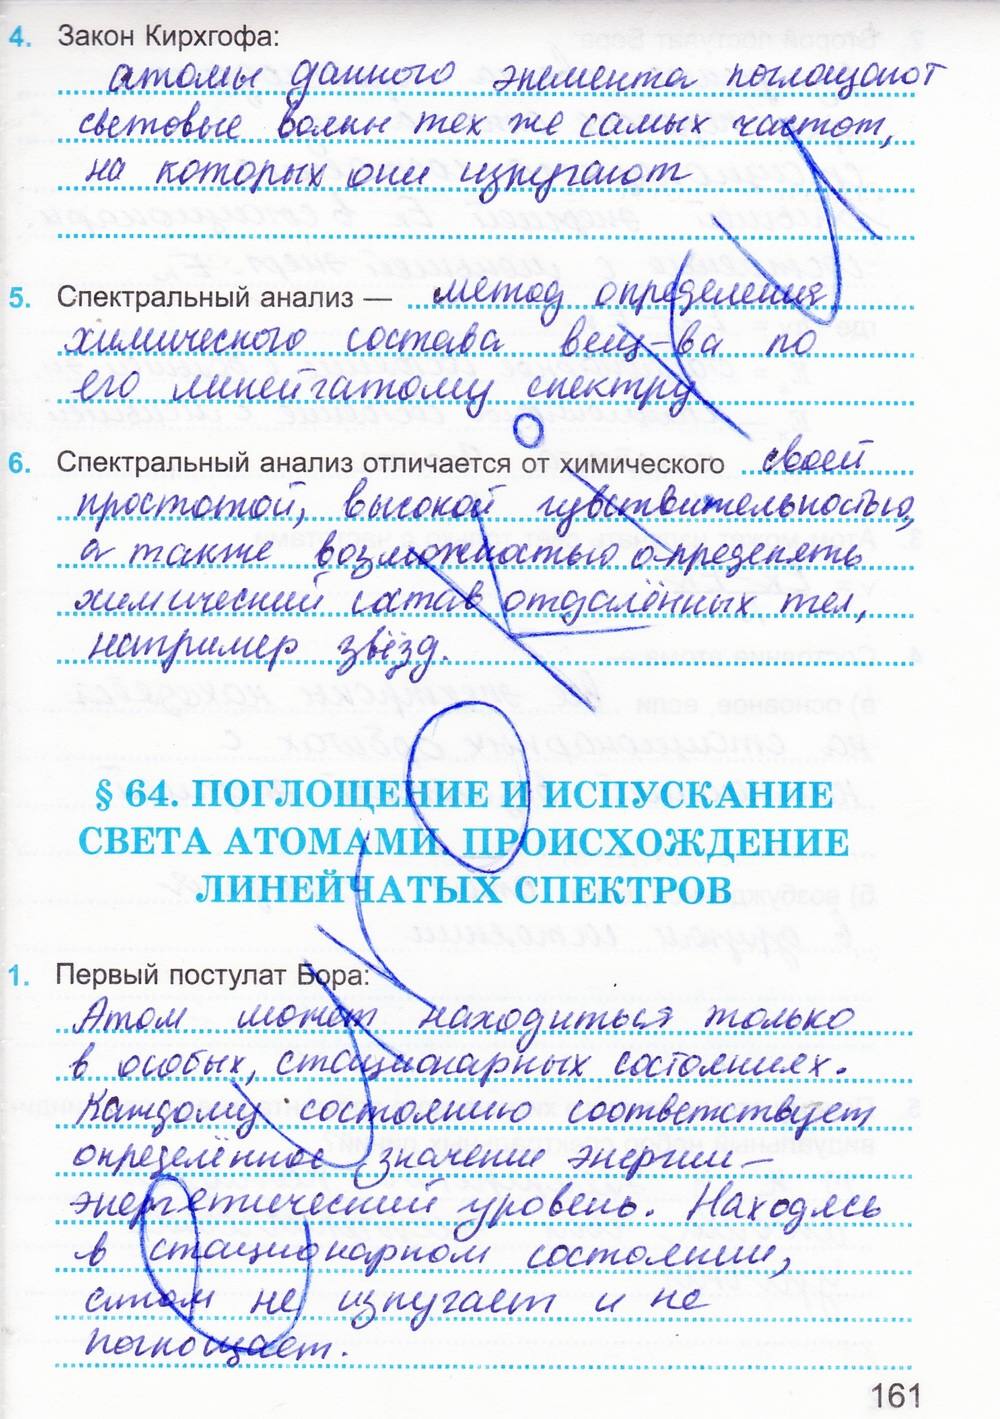 4. Закон Кирхгофа:
атомы данного элемента поглощают
световые волны тех же самых частот,
на которых они излучают
5. Спектральный анализ — метод определения
химического состава вещ-ва по
его линейчатому спектру
6. Спектральный анализ отличается от химического своей
простотой, высокой чувствительностью,
а также возможностью определять
химический состав отдалённых тел,
например звёзд.
§ 64. ПОГЛОЩЕНИЕ И ИСПУСКАНИЕ
СВЕТА АТОМАМИ. ПРОИСХОЖДЕНИЕ
ЛИНЕЙЧАТЫХ СПЕКТРОВ
1. Первый постулат Бора:
Атом может находиться только
в особых, стационарных состояниях.
Каждому состоянию соответствует
определённое значение энергии —
энергетический уровень. Находясь
в стационарном состоянии,
атом не излучает и не
поглощает.
161